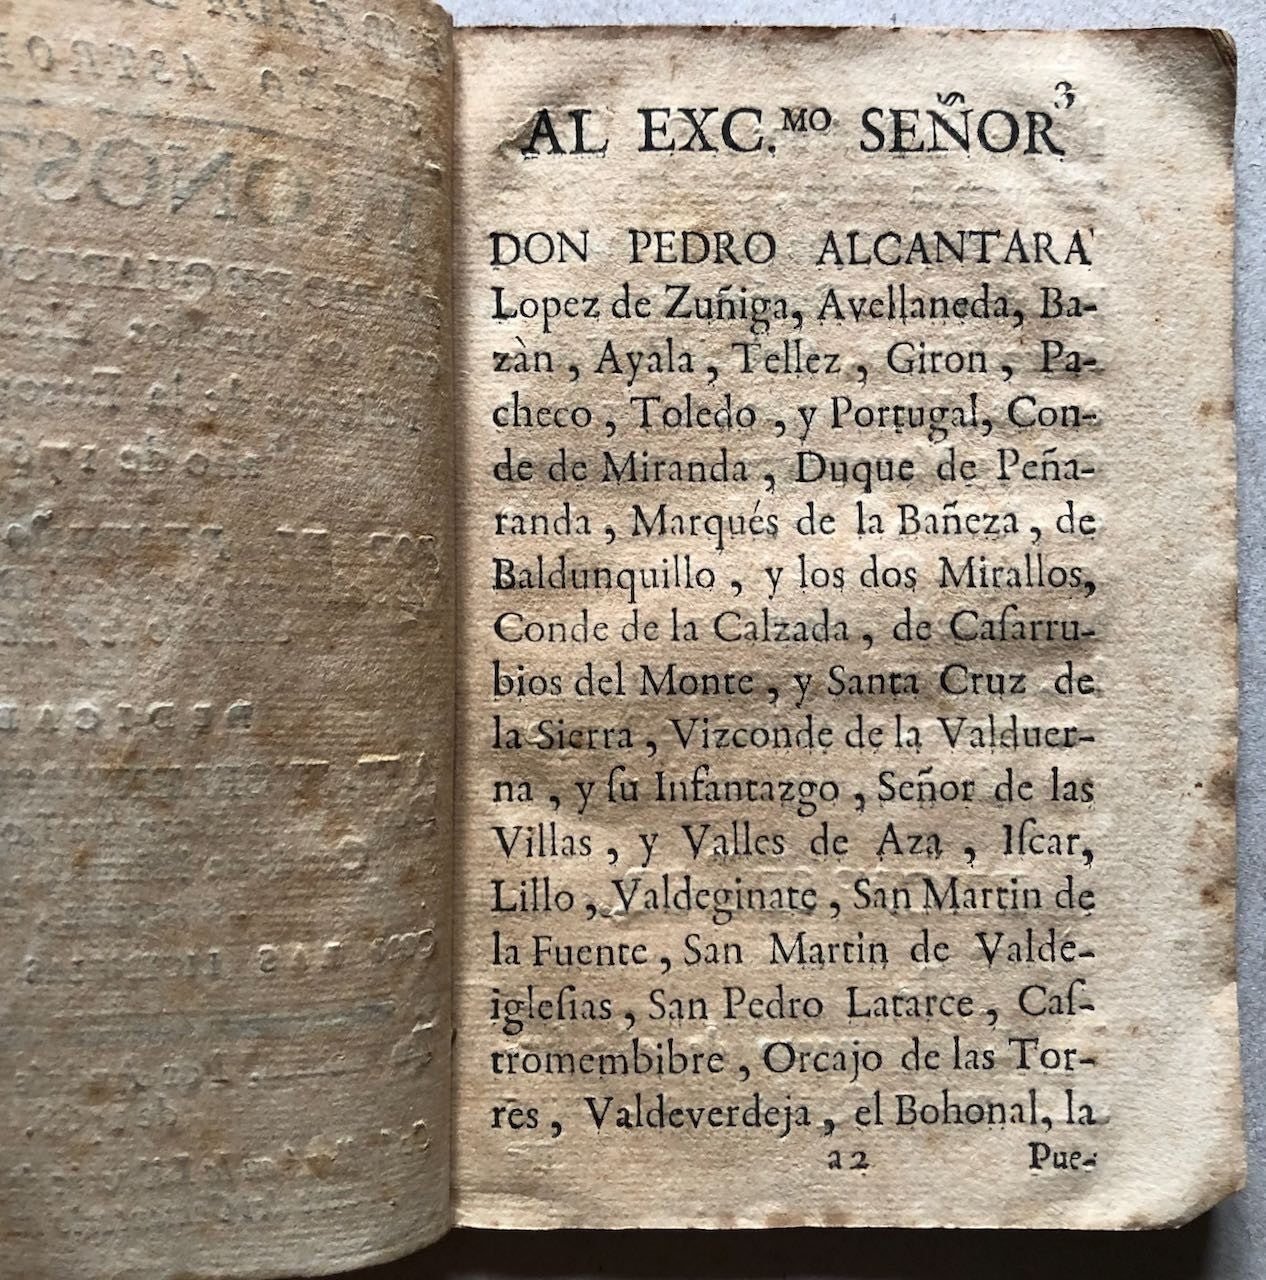 3
AL EXC.MO SEÑOR
DON PEDRO ALCANTARA
Lopez de Zuñiga, Avellaneda, Ba-
zàn, Ayala, Tellez, Giron, Pa-
checo, Toledo, y Portugal, Con-
de de Miranda, Duque de Peña-
randa, Marqués de la Bañeza, de
Baldunquillo, y los dos Mirallos,
Conde de la Calzada, de Caſarru-
bios del Monte, y Santa Cruz de
la Sierra, Vizconde de la Valduer-
na, y ſu Infantazgo, Señor de las
Villas, y Valles de Aza, Iſcar,
Lillo, Valdeginate, San Martin de
la Fuente, San Martin de Valde-
igleſias, San Pedro Latarce, Caſ-
tromembibre, Orcajo de las Tor-
res, Valdeverdeja, el Bohonal, la
a2 Pue-